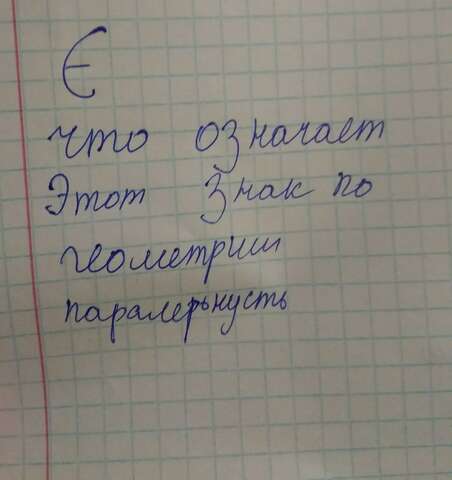 ∈
что означает
Этот знак по
геометрии
паралерьнусть